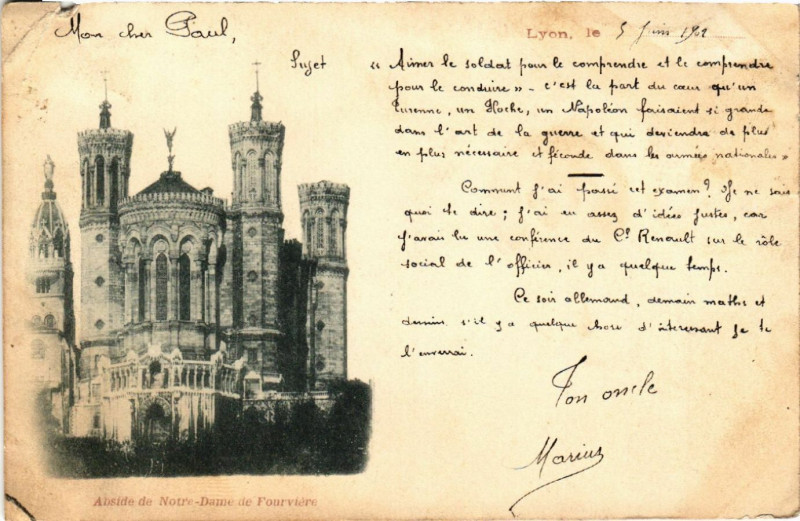 Mon cher Paul,
Lyon, le 5 Juin 1902
Sujet
« Aimer le soldat pour le comprendre et le comprendre
pour le conduire » - c'est la part du cœur qu'un
Turenne, un Hoche, un Napoléon faisaient si grande
dans l'art de la guerre et qui deviendra de plus
en plus nécessaire et féconde dans les armées nationales »
Comment j'ai passé cet examen? Je ne sais
quoi te dire ; j'ai eu assez d'idées justes, car
j'avais lu une conférence du Ct Renault sur le rôle
social de l'officier, il y a quelque temps.
Ce soir allemand, demain maths et
dessin. s'il y a quelque chose d'intéressant je te
l'enverrai.
Ton oncle
Marius
Abside de Notre-Dame de Fourvière